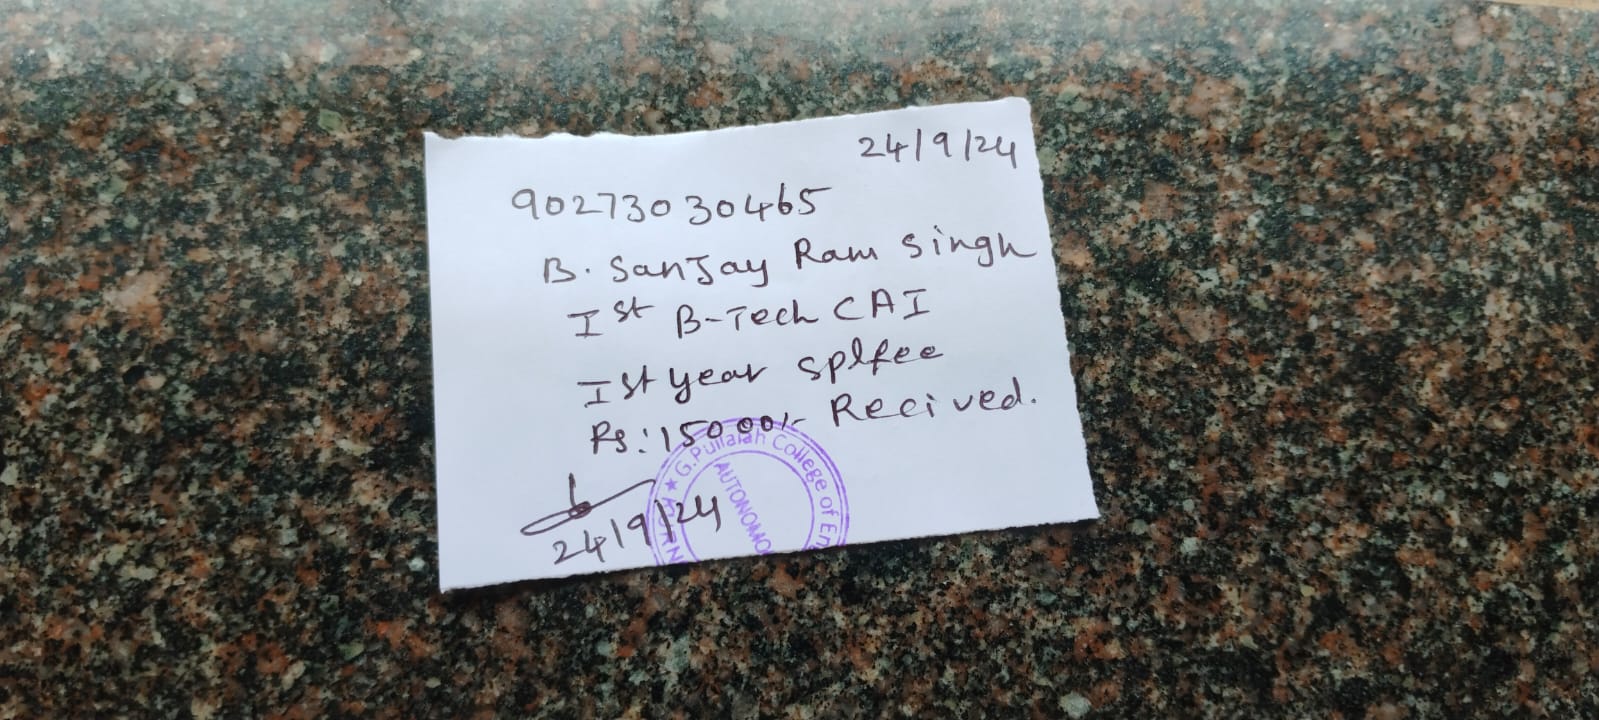 24/9/24
90273030465
B. Sanjay Ram Singh
Ist B-Tech CAI
Ist year splfee
Rs: 15000/- Recived.
24/9/24
G.Pullaiah College of En
AUTONOMO